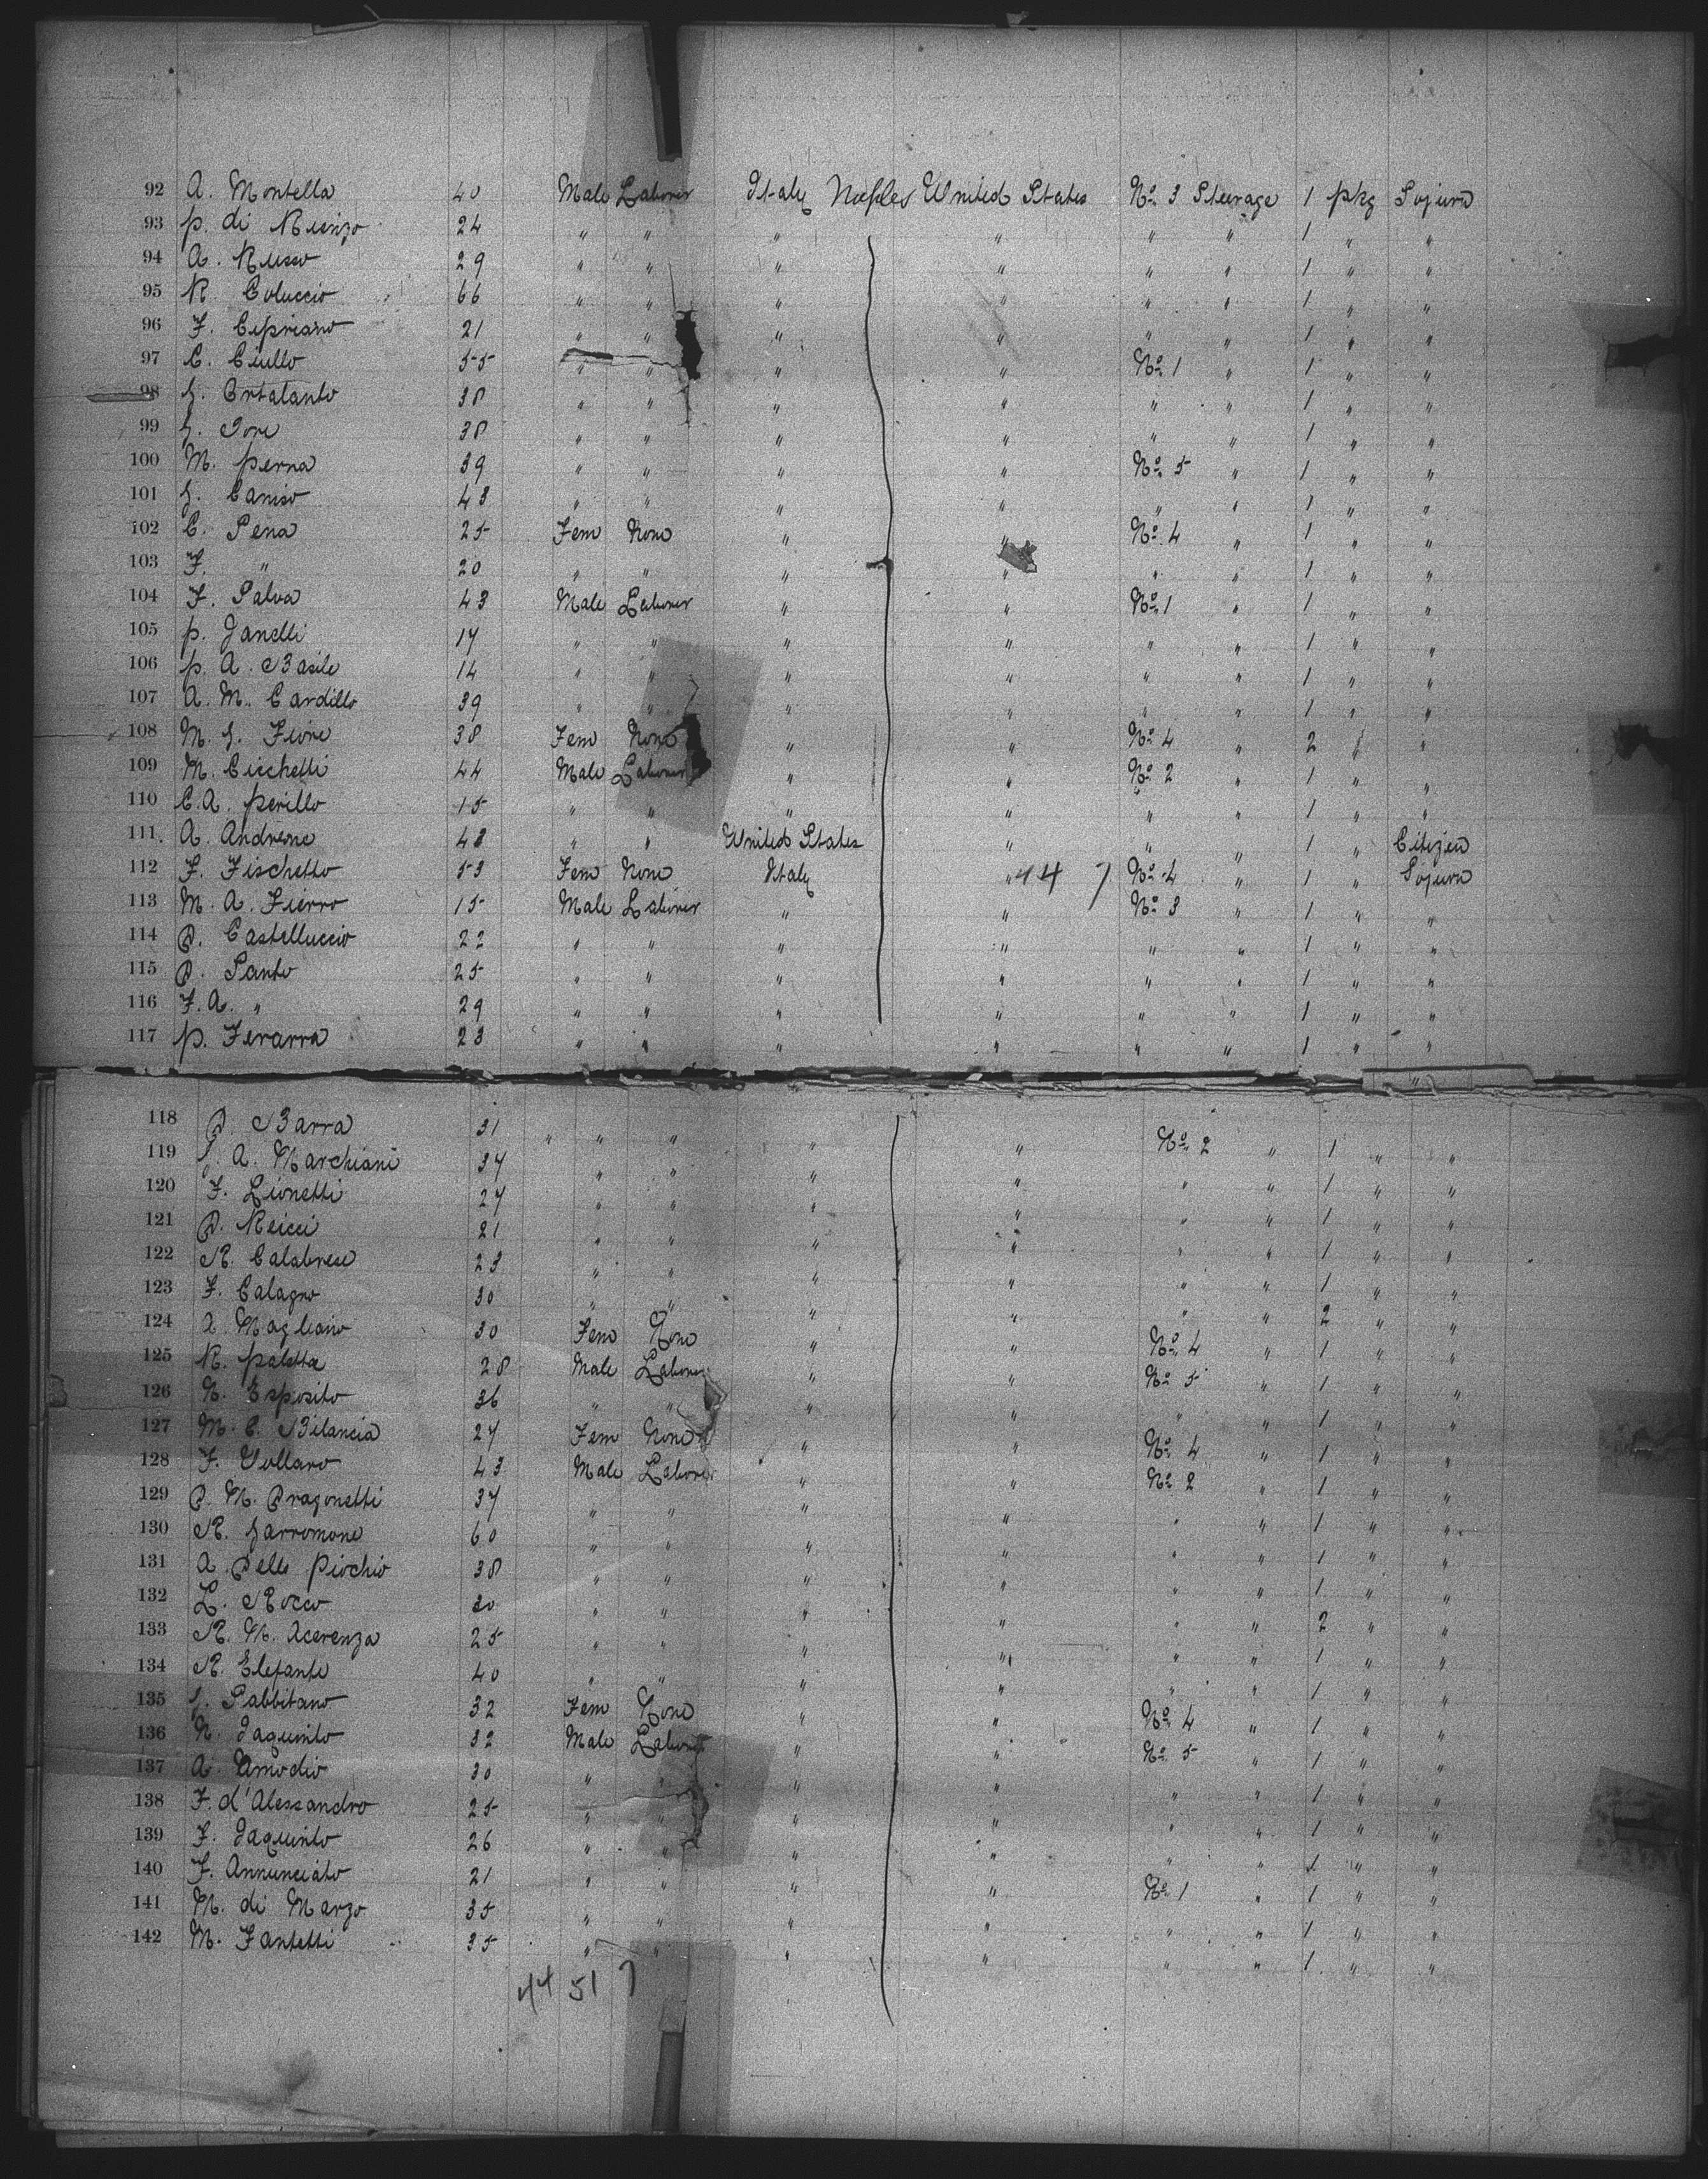 92 A. Montella 40 Male Laborer Italy Naples United States No. 3 Steerage 1 pkg Sojurn
93 p. di Rienzo 24 " " " " " " 1 " "
94 A. Russo 29 " " " " " " 1 " "
95 R. Coluccio 66 " " " " " " 1 " "
96 F. Cipriano 21 " " " " " " 1 " "
97 C. Ciullo 55 " " " " No. 1 " 1 " "
98 G. Ortalanto 38 " " " " " " 1 " "
99 G. Iore 38 " " " " " " 1 " "
100 M. Perna 39 " " " " No. 5 " 1 " "
101 G. Caniso 43 " " " " " " 1 " "
102 C. Pena 25 Fem None " " No. 4 " 1 " "
103 F. " 20 " " " " " " 1 " "
104 F. Salva 43 Male Laborer " " No. 1 " 1 " "
105 p. Janelli 17 " " " " " " 1 " "
106 p. A. Basile 14 " " " " " " 1 " "
107 A. M. Cardillo 39 " " " " " " 1 " "
108 M. G. Fiore 38 Fem None " " No. 4 " 2 " "
109 M. Cicchetti 44 Male Laborer " " No. 2 " 1 " "
110 C. A. Perillo 15 " " " " " " 1 " "
111 A. Andreone 48 " " United States " " " 1 " Citizen
112 F. Fischetto 53 Fem None Italy " 44 7 No. 4 " 1 " Sojurn
113 M. A. Fierro 15 Male Laborer " " No. 3 " 1 " "
114 D. Castelluccio 22 " " " " " " 1 " "
115 D. Santo 25 " " " " " " 1 " "
116 F. A. " 29 " " " " " " 1 " "
117 p. Ferarra 23 " " " " " " 1 " "
118 D. Barra 31 " " " " " No. 2 " 1 " "
119 G. A. Marchiani 37 " " " " " " 1 " "
120 F. Lionetti 27 " " " " " " 1 " "
121 D. Ricci 21 " " " " " " 1 " "
122 R. Calabrese 23 " " " " " " 1 " "
123 F. Calagno 30 " " " " " " 2 " "
124 A. Magliano 30 Fem None " " No. 4 " 1 " "
125 R. paletta 28 Male Laborer " " No. 5 " 1 " "
126 N. Esposito 36 " " " " " " 1 " "
127 M. C. Bilancia 27 Fem None " " No. 4 " 1 " "
128 F. Vollaro 43 Male Laborer " " No. 2 " 1 " "
129 D. M. Dragonetti 37 " " " " " " 1 " "
130 R. Garromone 60 " " " " " " 1 " "
131 A. Delle Piochio 38 " " " " " " 1 " "
132 L. Rocco 30 " " " " " " 2 " "
133 R. M. Acerenza 25 " " " " " " 1 " "
134 R. Elefante 40 " " " " " " 1 " "
135 G. Sabbitano 32 Fem None " " No. 4 " 1 " "
136 N. Jaquinto 32 Male Laborer " " No. 5 " 1 " "
137 A. Amodio 30 " " " " " " 1 " "
138 F. d'Alessandro 25 " " " " " " 1 " "
139 F. Jaquinto 26 " " " " " " 1 " "
140 F. Annunciato 21 " " " " No. 1 " 1 " "
141 M. di Marzo 35 " " " " " " 1 " "
142 M. Fantetti 35 " " " " " " 1 " "
44 51 7